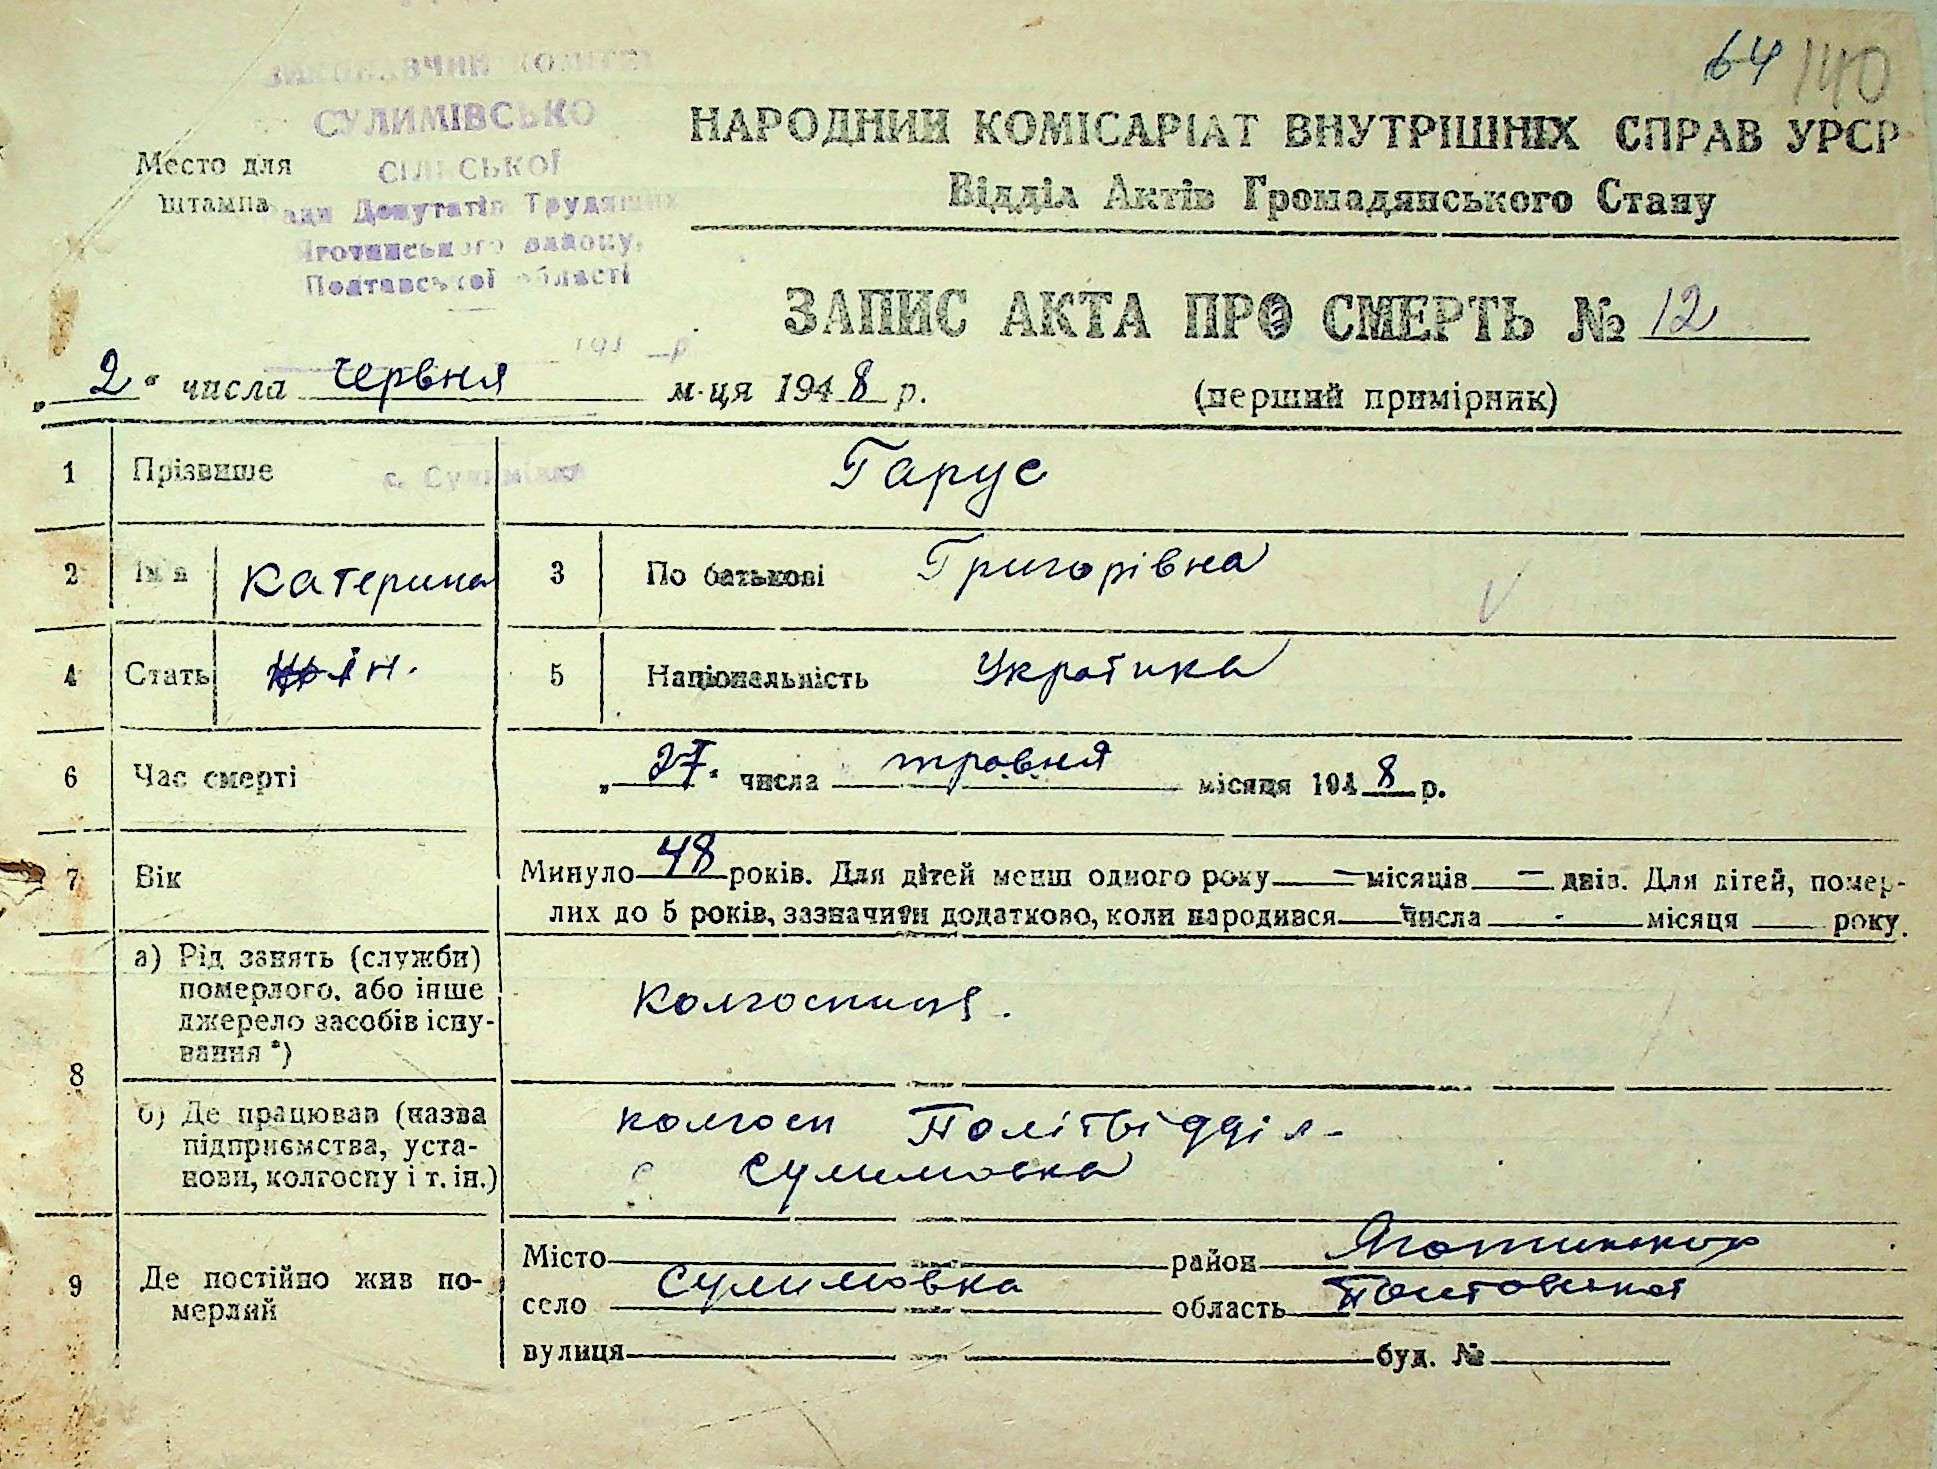 64 140
ВИКОНАВЧИЙ КОМІТЕТ
СУЛИМІВСЬКО
СІЛЬСЬКОЇ
Ради Депутатів Трудящих
Яготинського району,
Полтавської області
194 р.
с. Сулимівка
Место для
штампа
НАРОДНИЙ КОМІСАРІАТ ВНУТРІШНІХ СПРАВ УРСР
Відділ Актів Громадянського Стану
ЗАПИС АКТА ПРО СМЕРТЬ № 12
„2“ числа червня м-ця 1948 р.
(перший примірник)
1 Прізвише Гарус
2 Ім'я Катерина 3 По батькові Григорівна
4 Стать жін. 5 Національність Українка
6 Час смерті „27“ числа травня місяця 1948 р.
7 Вік Минуло 48 років. Для дітей менш одного року — місяців — днів. Для дітей, помер-
лих до 5 років, зазначити додатково, коли народився — числа - місяця — року.
8 а) Рід занять (служби)
померлого, або інше
джерело засобів існу-
вання *)
колгоспниця.
б) Де працював (назва
підприємства, уста-
нови, колгоспу і т. ін.)
колгосп Політвідділ-
с Сулимовка
9 Де постійно жив по-
мерлий
Місто район Яготинський
село Сулимовка область Полтовська
вулиця буд. №